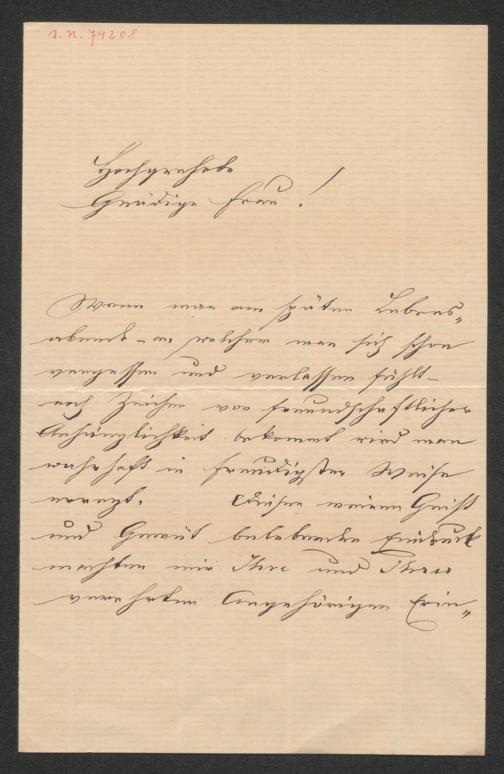 J. N. 74208
Hochgeehrte
Gnädige Frau!
Wenn man am späten Lebens„
abend – an welchem man sich schon
vergessen und verlassen fühlt –
noch Zeichen von freundschaftlicher
Anhänglichkeit bekommt wird man
wahrhaft in freudigster Weise
erregt. Diesen meinen Geist
und Gemüt belebenden Eindruck
machten mir Ihre und Ihrer
verehrten Angehörigen Erin„